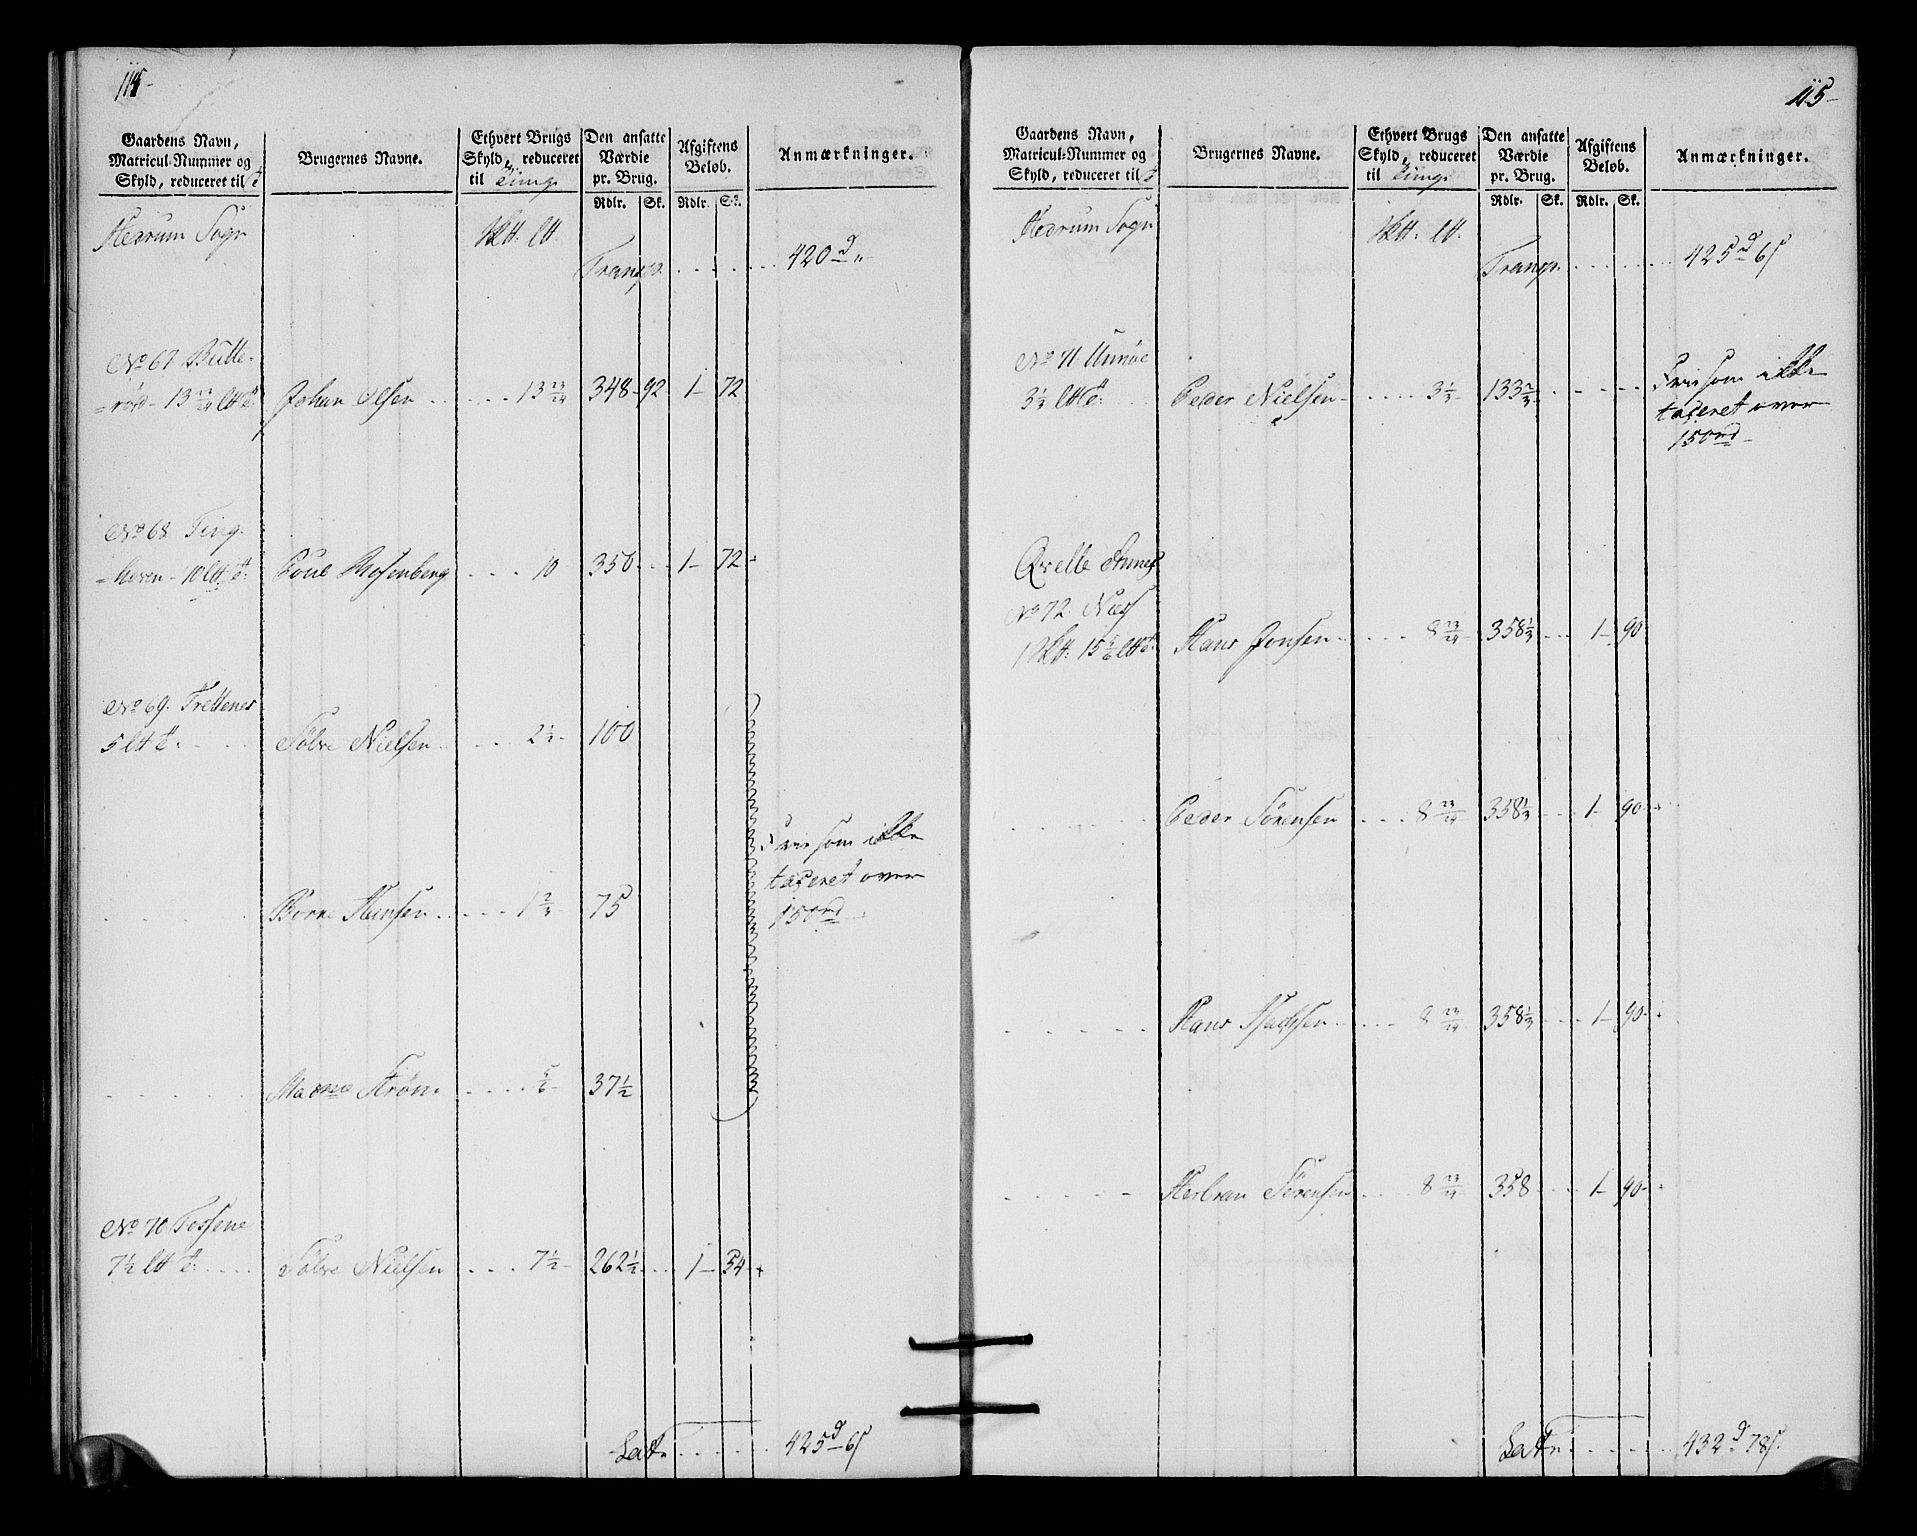 114
Gaardens Navn,
Matricul-Nummer og
Skyld, reduceret til
Brugernes Navne.
Ethvert Brugs
Skyld, reduceret
til Tung
Den ansatte
Værdie
pr. Brug.
Rdlr. Sk.
Afgiftens
Beløb.
Rdlr. Sk.
Anmærkninger.
Hedrum Sogn
Transp. 420 d "
No 67 Butte-
=rød - 13 23/24 lttt: Johan Olsen 13 23/24 348 - 92 1 - 72
No 68 Ting-
=hoven - 10 lttt: Poul Rosenberg 10 350 1 - 72
No 69. Trettenes
5 lttt. Sølve Nielsen 2 1/2 100
Frie som ikke
taxeret over
150 rd
Børre Hansen 1 2/3 75
5/6 37 1/2
No 70 Tossene
7 1/2 lttt. Sølve Nielsen 7 1/2 262 1/2 1 - 54
Lat. 425 d 6 s
115
Gaardens Navn,
Matricul-Nummer og
Skyld, reduceret til
Brugernes Navne.
Ethvert Brugs
Skyld, reduceret
til Tung
Den ansatte
Værdie
pr. Brug.
Rdlr. Sk.
Afgiftens
Beløb.
Rdlr. Sk.
Anmærkninger.
Hedrum Sogn
Transp. 425 d 6 s
No 71 Unnøe
3 1/3 lttt. Peder Nielsen 3 1/3 133 2/3
Frie som ikke
taxeret over
150 rd
Qvelle Annex
No 72. Næss
15 5/6 lttt. Hans Jonsen 8 23/24 358 1/3 1 - 90
Peder Sørensen 8 23/24 358 1/3 1 - 90
Hans Isachsen 8 23/24 358 1/3 1 - 90
Herbran Sørensen 8 23/24 358 1 - 90
Lat. 432 d 78 s.